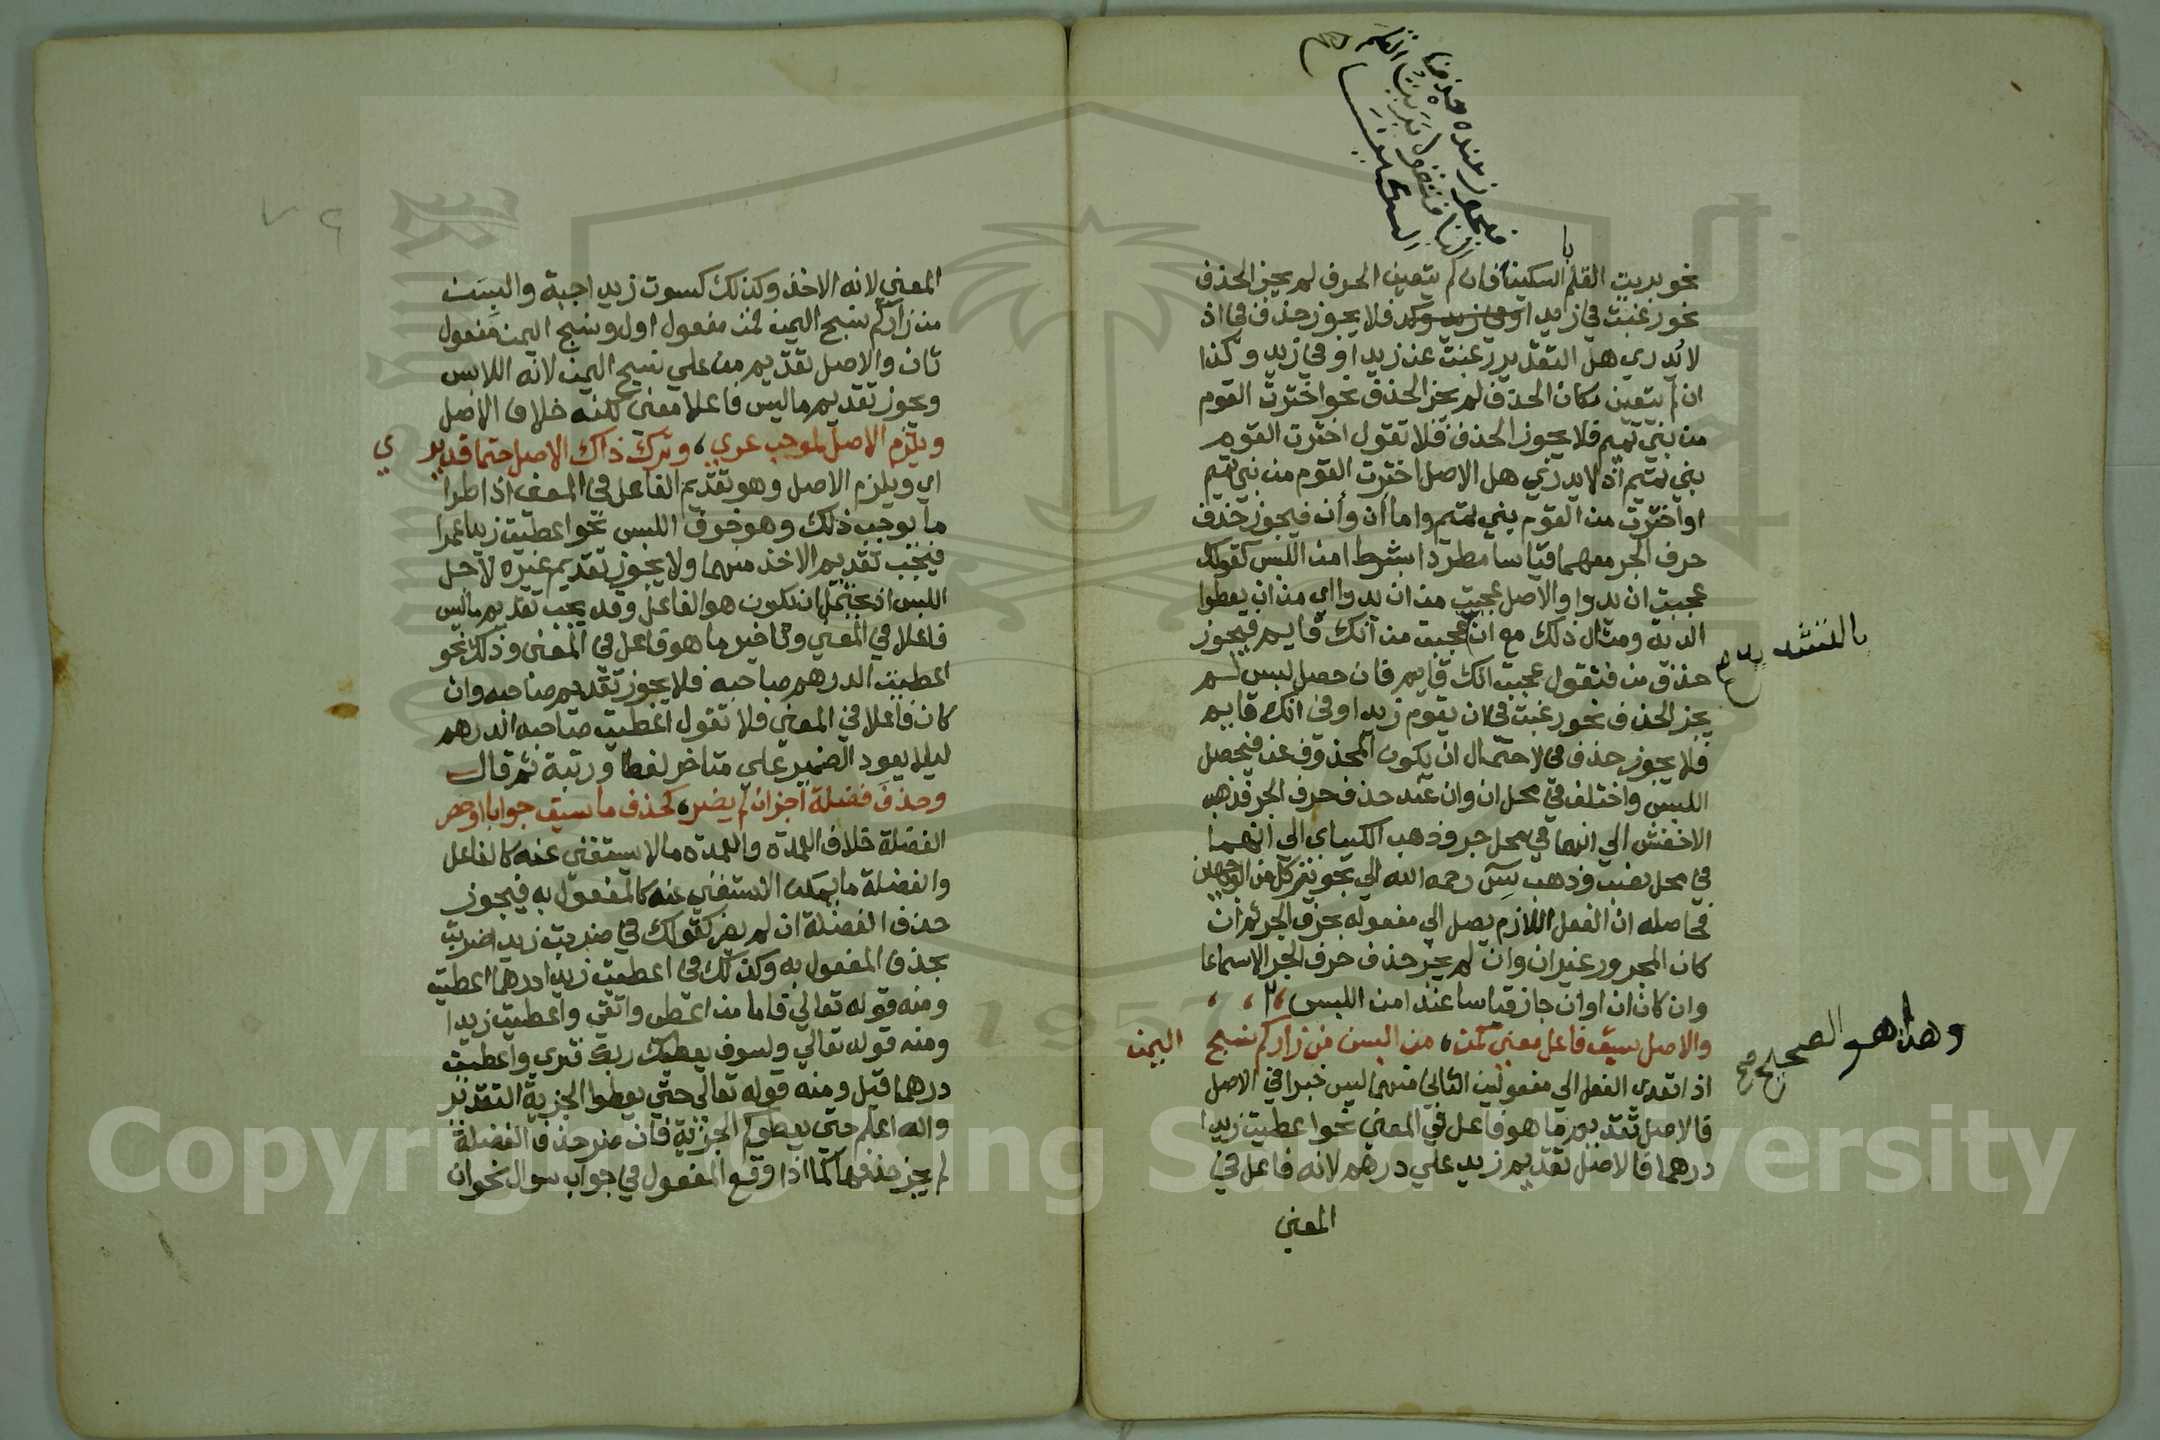 فيجوز عنده حذفها
فتقول بريت القلم
السكين
با
نحو بريت القلم السكين فان لم يتعين الحرف لم يجز الحذف
نحو رغبت في زيد فلا يجوز حذف في اذ
لا يدري هل التقدير رغبت عن زيد او في زيد وكذا
ان لم يتعين مكان الحذف لم يجز الحذف نحو اخترت القوم
من بني تميم فلا يجوز الحذف فلا تقول اخترت القوم
بني تميم اذ لا يدري هل الاصل اخترت القوم من بني تميم
او اخترت من القوم بني تميم واما أن وأن فيجوز حذف
حرف الجر معهما قياسا مطردا بشرط امن اللبس كقولك
عجبت ان يدوا والاصل عجبت من ان يدوا اي من ان يعطوا
الدية ومثال ذلك مع ان عجبت من أنك قايم فيجوز
بالتشديد صح
حذف من فتقول عجبت انك قايم فان حصل لبس لم
يجز الحذف نحو رغبت في ان يقوم زيد او في أنك قايم
فلا يجوز حذف في لاحتمال ان يكون المحذوف عن فيحصل
اللبس واختلف في محل ان وان عند حذف حرف الجر فذهب
الاخفش الي انهما في محل جر وذهب الكسائي الي انهما
في محل نصب وذهب س رحمه الله الي تجويز كل من الوجهين
وحاصله ان الفعل اللازم يصل الي مفعوله بحرف الجر ثم ان
كان المجرور غير ان وان لم يجز حذف حرف الجر الا سماعا
وان كان ان او ان جاز قياسا عند امن اللبس
وهذا هو الصحيح صح
والاصل سبق فاعل معني كمن، من البسن من زاركم نسج اليمن
اذا تعدي الفعل الي مفعولين الثاني منهما ليس خبرا في الاصل
فالاصل تقديم ما هو فاعل في المعني نحو اعطيت زيدا
درهما فالاصل تقديم زيد علي درهم لانه فاعل في
المعني
المعني لانه الاخذ وكذلك كسوت زيدا جبة والبسن
من زاركم نسج اليمن فمن مفعول اول ونسج اليمن مفعول
ثان والاصل تقديم من علي نسج اليمن لانه اللابس
ويجوز تقديم ما ليس فاعلا معني لكنه خلاف الاصل
ويلزم الاصل لموجب عري، وترك ذاك الاصل حتما قد يري
اي ويلزم الاصل وهو تقديم الفاعل في المعني اذا طرا
ما يوجب ذلك وهو خوف اللبس نحو اعطيت زيدا عمرا
فيجب تقديم الاخذ منهما ولا يجوز تقديم غيره لاجل
اللبس اذ يحتمل ان يكون هو الفاعل وقد يجب تقديم ما ليس
فاعلا في المعني وتاخير ما هو فاعل في المعني وذلك نحو
اعطيت الدرهم صاحبه فلا يجوز تقديم صاحبه وان
كان فاعلا في المعني فلا تقول اعطيت صاحبه الدرهم
ليلا يعود الضمير علي متاخر لفظا ورتبة ثم قال
وحذف فضلة اجز ان لم يضر، كحذف ما سيق جوابا او حصر
الفضلة خلاف العمدة والعمدة ما لا يستغني عنه كالفاعل
والفضلة ما يمكن الاستغني عنه كالمفعول به فيجوز
حذف الفضلة ان لم يضر كقولك في ضربت زيدا ضربت
بحذف المفعول به وكذلك في اعطيت زيدا درهما اعطيت
ومنه قوله تعالي فاما من اعطي واتقي واعطيت زيدا
ومنه قوله تعالي ولسوف يعطيك ربك فترضي واعطيت
درهما قيل ومنه قوله تعالي حتي يعطوا الجزية التقدير
والله اعلم حتي يعطوكم الجزية فان ضر حذف الفضلة
لم يجز حذفها كما اذا وقع المفعول في جواب سوال نحو ان
1957
Copyright © King Saud University